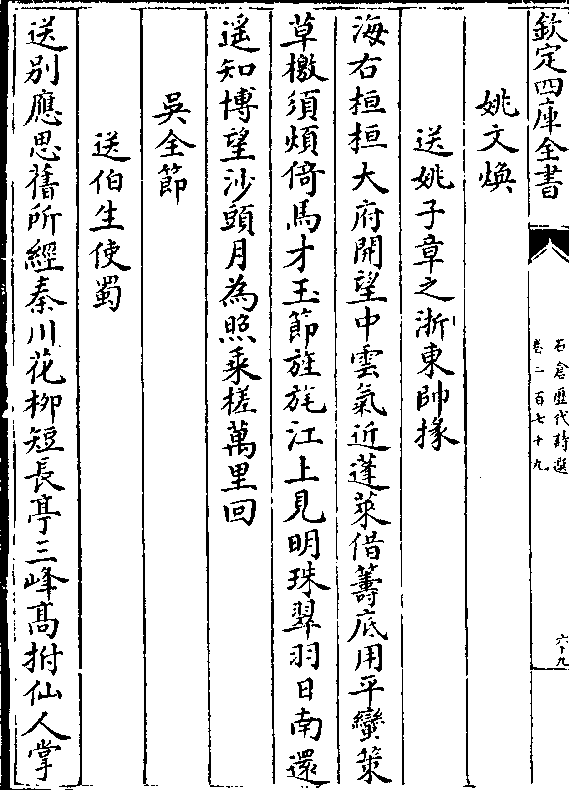 欽定四庫全書
石倉歷代詩選
卷二百七十九
六十九
姚文煥
送姚子章之浙東帥掾
海右桓桓大府開望中雲氣近蓬萊借籌底用平蠻策
草檄須煩倚馬才玉節旌旄江上見明珠翠羽日南還
遥知博望沙頭月為照乘槎萬里回
吳全節
送伯生使蜀
送别應思舊所經秦川花柳短長亭三峰髙拊仙人掌